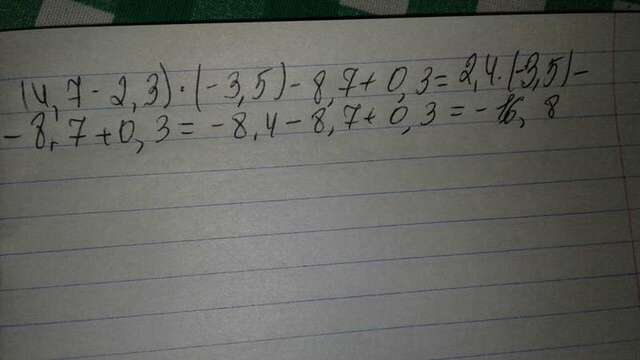 (4,7-2,3)·(-3,5)-8,7+0,3=2,4·(-3,5)-
-8,7+0,3=-8,4-8,7+0,3=-16,8